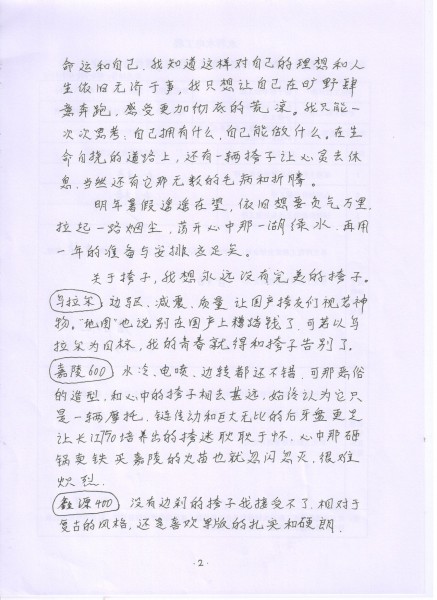 命运和自己、我知道这样对自己的理想和人
生依旧无济于事，我只想让自己在旷野肆
意奔跑，感受更加彻底的荒凉。我只能一
次次思考，自己拥有什么，自己能做什么。在生
命自挠的道路上，还有一辆挎子让心灵去休
息，当然还有它那无数的毛病和折腾。
明年暑假遥遥在望，依旧想要负气万里，
拉起一路烟尘，荡开心中那一湖绿水，再用
一年的准备与安排立足矣。
关于挎子，我想永远没有完美的挎子。
乌拉尔 边驱、减震、质量让国产挎友们视若神
物。“地图”也说别在国产上糟蹋钱了，可若以乌
拉尔为目标，我的青春就得和挎子告别了。
嘉陵600 水冷、电喷、边转都还不错，可那恶俗
的造型，和心中的挎子相去甚远，始终认为它只
是一辆摩托，链传动和巨大无比的后牙盘更是
让长江750培养出的挎迷耿耿于怀，心中那砸
锅卖铁买嘉陵的火苗也就忽闪忽灭，很难
炽烈。
鑫源400 没有边刹的挎子我接受不了，相对于
复古的风格，还是喜欢军版的扎实和硬朗。
·2·